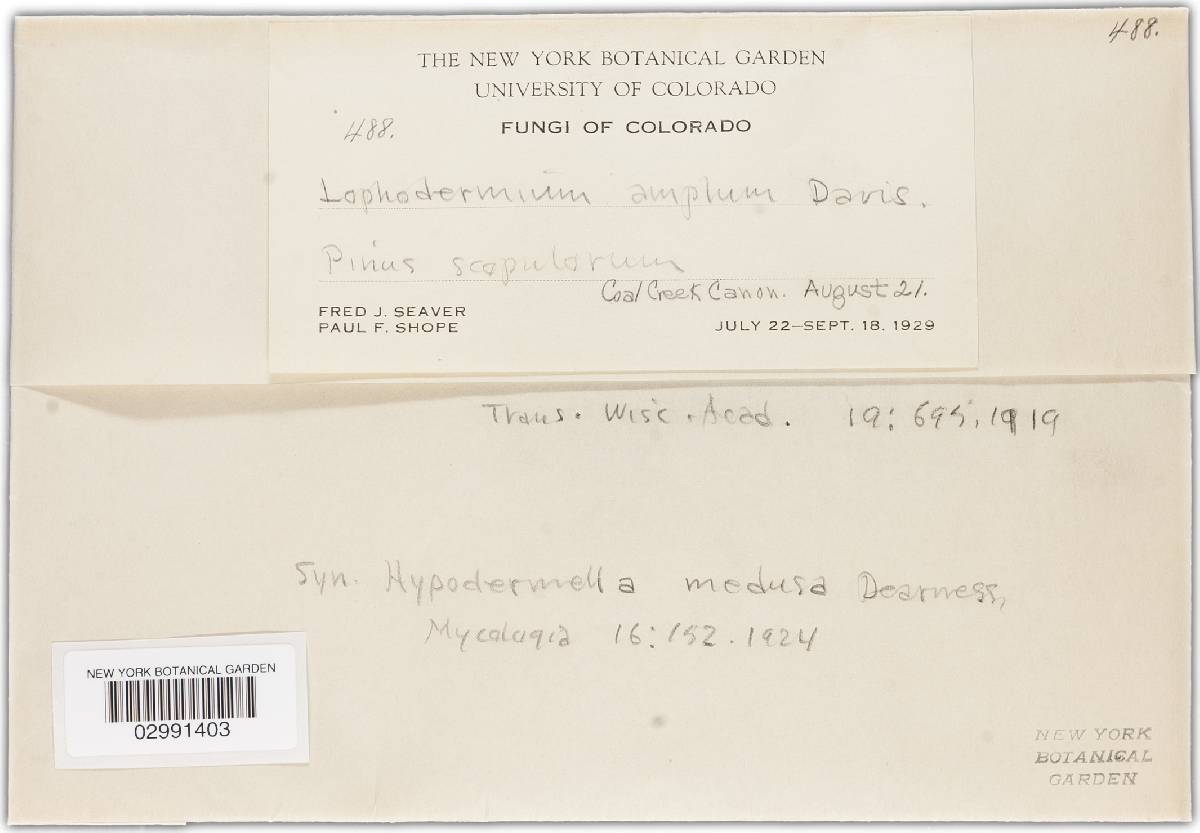 488.
THE NEW YORK BOTANICAL GARDEN
UNIVERSITY OF COLORADO
FUNGI OF COLORADO
488.
Lophodermium amplum Davis.
Pinus scopulorum
Coal Creek Canon. August 21.
FRED J. SEAVER
PAUL F. SHOPE
JULY 22–SEPT. 18. 1929
Trans. Wisc. Acad. 19: 695, 1919
Syn. Hypodermella medusa Dearness,
Mycologia 16: 152. 1924
NEW YORK BOTANICAL GARDEN
02991403
NEW YORK
BOTANICAL
GARDEN